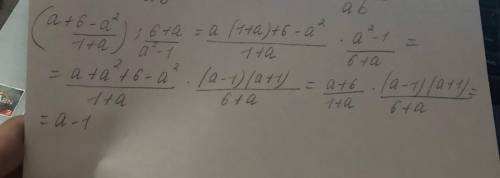 ab
(a + (6 - a²)/(1+a)) : (6+a)/(a²-1) = (a (1+a) + 6 - a²)/(1+a) · (a²-1)/(6+a) =
= (a + a² + 6 - a²)/(1+a) · ((a-1)(a+1))/(6+a) = (a+6)/(1+a) · ((a-1)(a+1))/(6+a) =
= a - 1